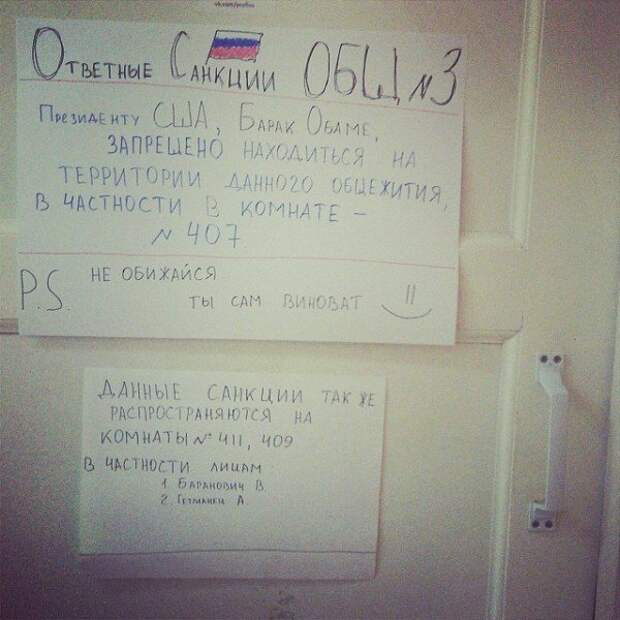 Ответные Санкции ОБЩ №3
Президенту США, Барак Обаме,
ЗАПРЕЩЕНО НАХОДИТЬСЯ НА
ТЕРРИТОРИИ ДАННОГО ОБЩЕЖИТИЯ,
В ЧАСТНОСТИ В КОМНАТЕ –
№ 407
P.S. НЕ ОБИЖАЙСЯ
ТЫ САМ ВИНОВАТ
ДАННЫЕ САНКЦИИ ТАК ЖЕ
РАСПРОСТРАНЯЮТСЯ НА
КОМНАТЫ № 411, 409
В ЧАСТНОСТИ ЛИЦАМ
1. БАРАНОВИЧ В.
2. ГЕТМАНЕЦ А.